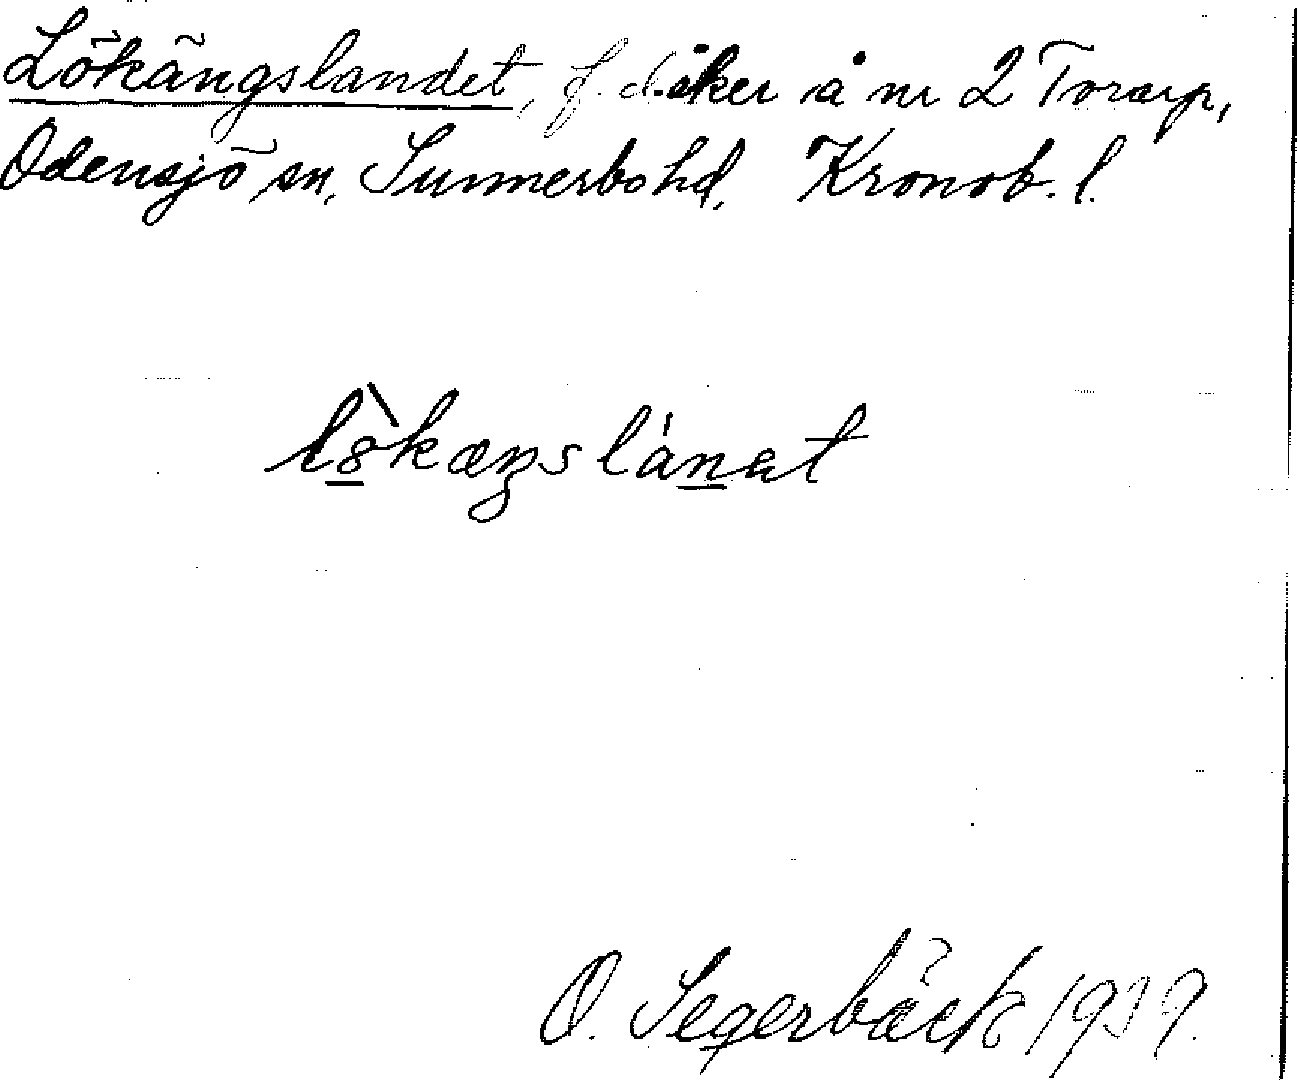 Lökängslandet, f. d. åker å nr 2 Torarp,
Odensjö sn, Sunnerbo hd, Kronob. l.
lö̀kæŋslánat
O. Segerbäck 1939.